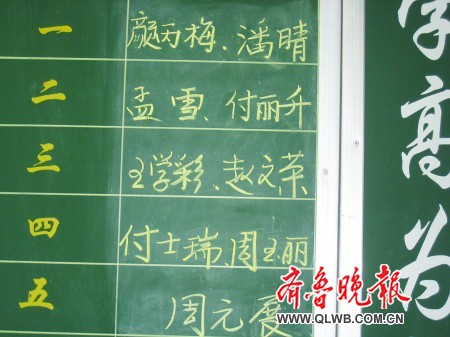 一 颜丙梅、潘晴
二 孟雪、付丽升
三 王学彩、赵文荣
四 付士瑞、周玉丽
五 周元展
学高为
齐鲁晚报
WWW.QLWB.COM.CN